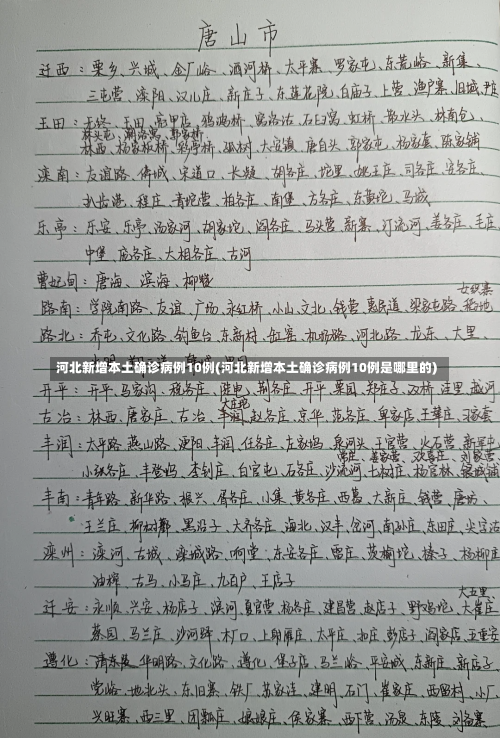 唐山市
迁西：栗乡、兴城、金厂峪、洒河桥、太平寨、罗家屯、东荒峪、新集、
三屯营、滦阳、汉儿庄、新庄子、东莲花院、白庙子、上营、渔户寨、旧城、尹庄
玉田：无终、玉田、亮甲店、鸦鸿桥、窝洛沽、石臼窝、虹桥、散水头、林南仓、
林头屯、潮洛窝、郭家桥
林西、杨家板桥、彩亭桥、孤树、大安镇、唐自头、郭家屯、杨家套、陈家铺
滦南：友谊路、倴城、宋道口、长凝、胡各庄、坨里、姚王庄、司各庄、安各庄、
扒齿港、程庄、青坨营、柏各庄、南堡、方各庄、东黄坨、马城
乐亭：乐安、乐亭、汤家河、胡家坨、阎各庄、马头营、新寨、汀流河、姜各庄、毛庄、
中堡、庞各庄、大相各庄、古河
曹妃甸：唐海、滨海、柳赞
女织寨
路南：学院南路、友谊、广场、永红桥、小山、文北、钱营、惠民道、梁家屯路、稻地
路北：乔屯、文化路、钓鱼台、东新村、缸窑、机场路、河北路、龙东、大里、
河北新增本土确诊病例10例(河北新增本土确诊病例10例是哪里的)
开平：开平、马家沟、税务庄、陡电、荆各庄、开平、栗园、郑庄子、双桥、洼里、越河
大庄坨
古冶：林西、唐家庄、古冶、赵各庄、京华、范各庄、卑家店、王辇庄、习家套
丰润：太平路、燕山路、浭阳、丰润、任各庄、左家坞、泉河头、王官营、火石营、新军屯、
常庄、姜家营、欢喜庄、刘家营
小张各庄、丰登坞、李钊庄、白官屯、石各庄、沙流河、七树庄、杨官林、银城铺
丰南：青年路、新华路、振兴、胥各庄、小集、黄各庄、西葛、大新庄、钱营、唐坊、
王兰庄、柳树䣠、黑沿子、大齐各庄、海北、汉丰、岔河、南孙庄、东田庄、尖字沽
滦州：滦河、古城、滦城路、响堂、东安各庄、雷庄、茨榆坨、榛子、杨柳庄
油榨、古马、小马庄、九百户、王店子
大五里
迁安：永顺、兴安、杨店子、滨河、夏官营、杨各庄、建昌营、赵店子、野鸡坨、大崔庄
蔡园、马兰庄、沙河驿、木厂口、上射雁庄、太平庄、扣庄、彭店子、阎家店、五重安
遵化：清东陵、华明路、文化路、遵化、堡子店、马兰峪、平安城、东新庄、新店子、
党峪、地北头、东旧寨、铁厂、苏家洼、建明、石门、崔家庄、西留村、小厂、
兴旺寨、西三里、团瓢庄、娘娘庄、侯家寨、西下营、汤泉、东陵、刘备寨